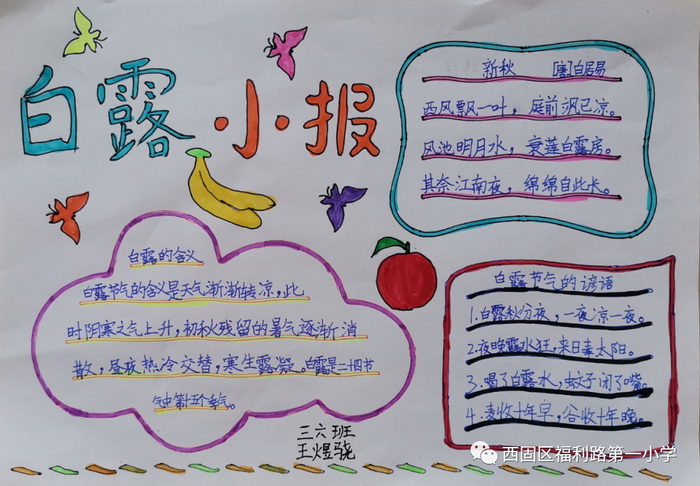 白露小报
新秋 [唐]白居易
西风飘一叶，庭前飒已凉。
风池明月水，衰莲白露房。
其奈江南夜，绵绵自此长。
白露的含义
白露节气的含义是天气渐渐转凉，此
时阴寒之气上升，初秋残留的暑气逐渐消
散，昼夜热冷交替，寒生露凝。白露是二十四节
气中第十五个节气。
白露节气的谚语
1.白露秋分夜，一夜凉一夜。
2.夜晚露水狂，来日毒太阳。
3.喝了白露水，蚊子闭了嘴。
4.麦收十年早，谷收十年晚。
三六班
王煜骁
西固区福利路第一小学